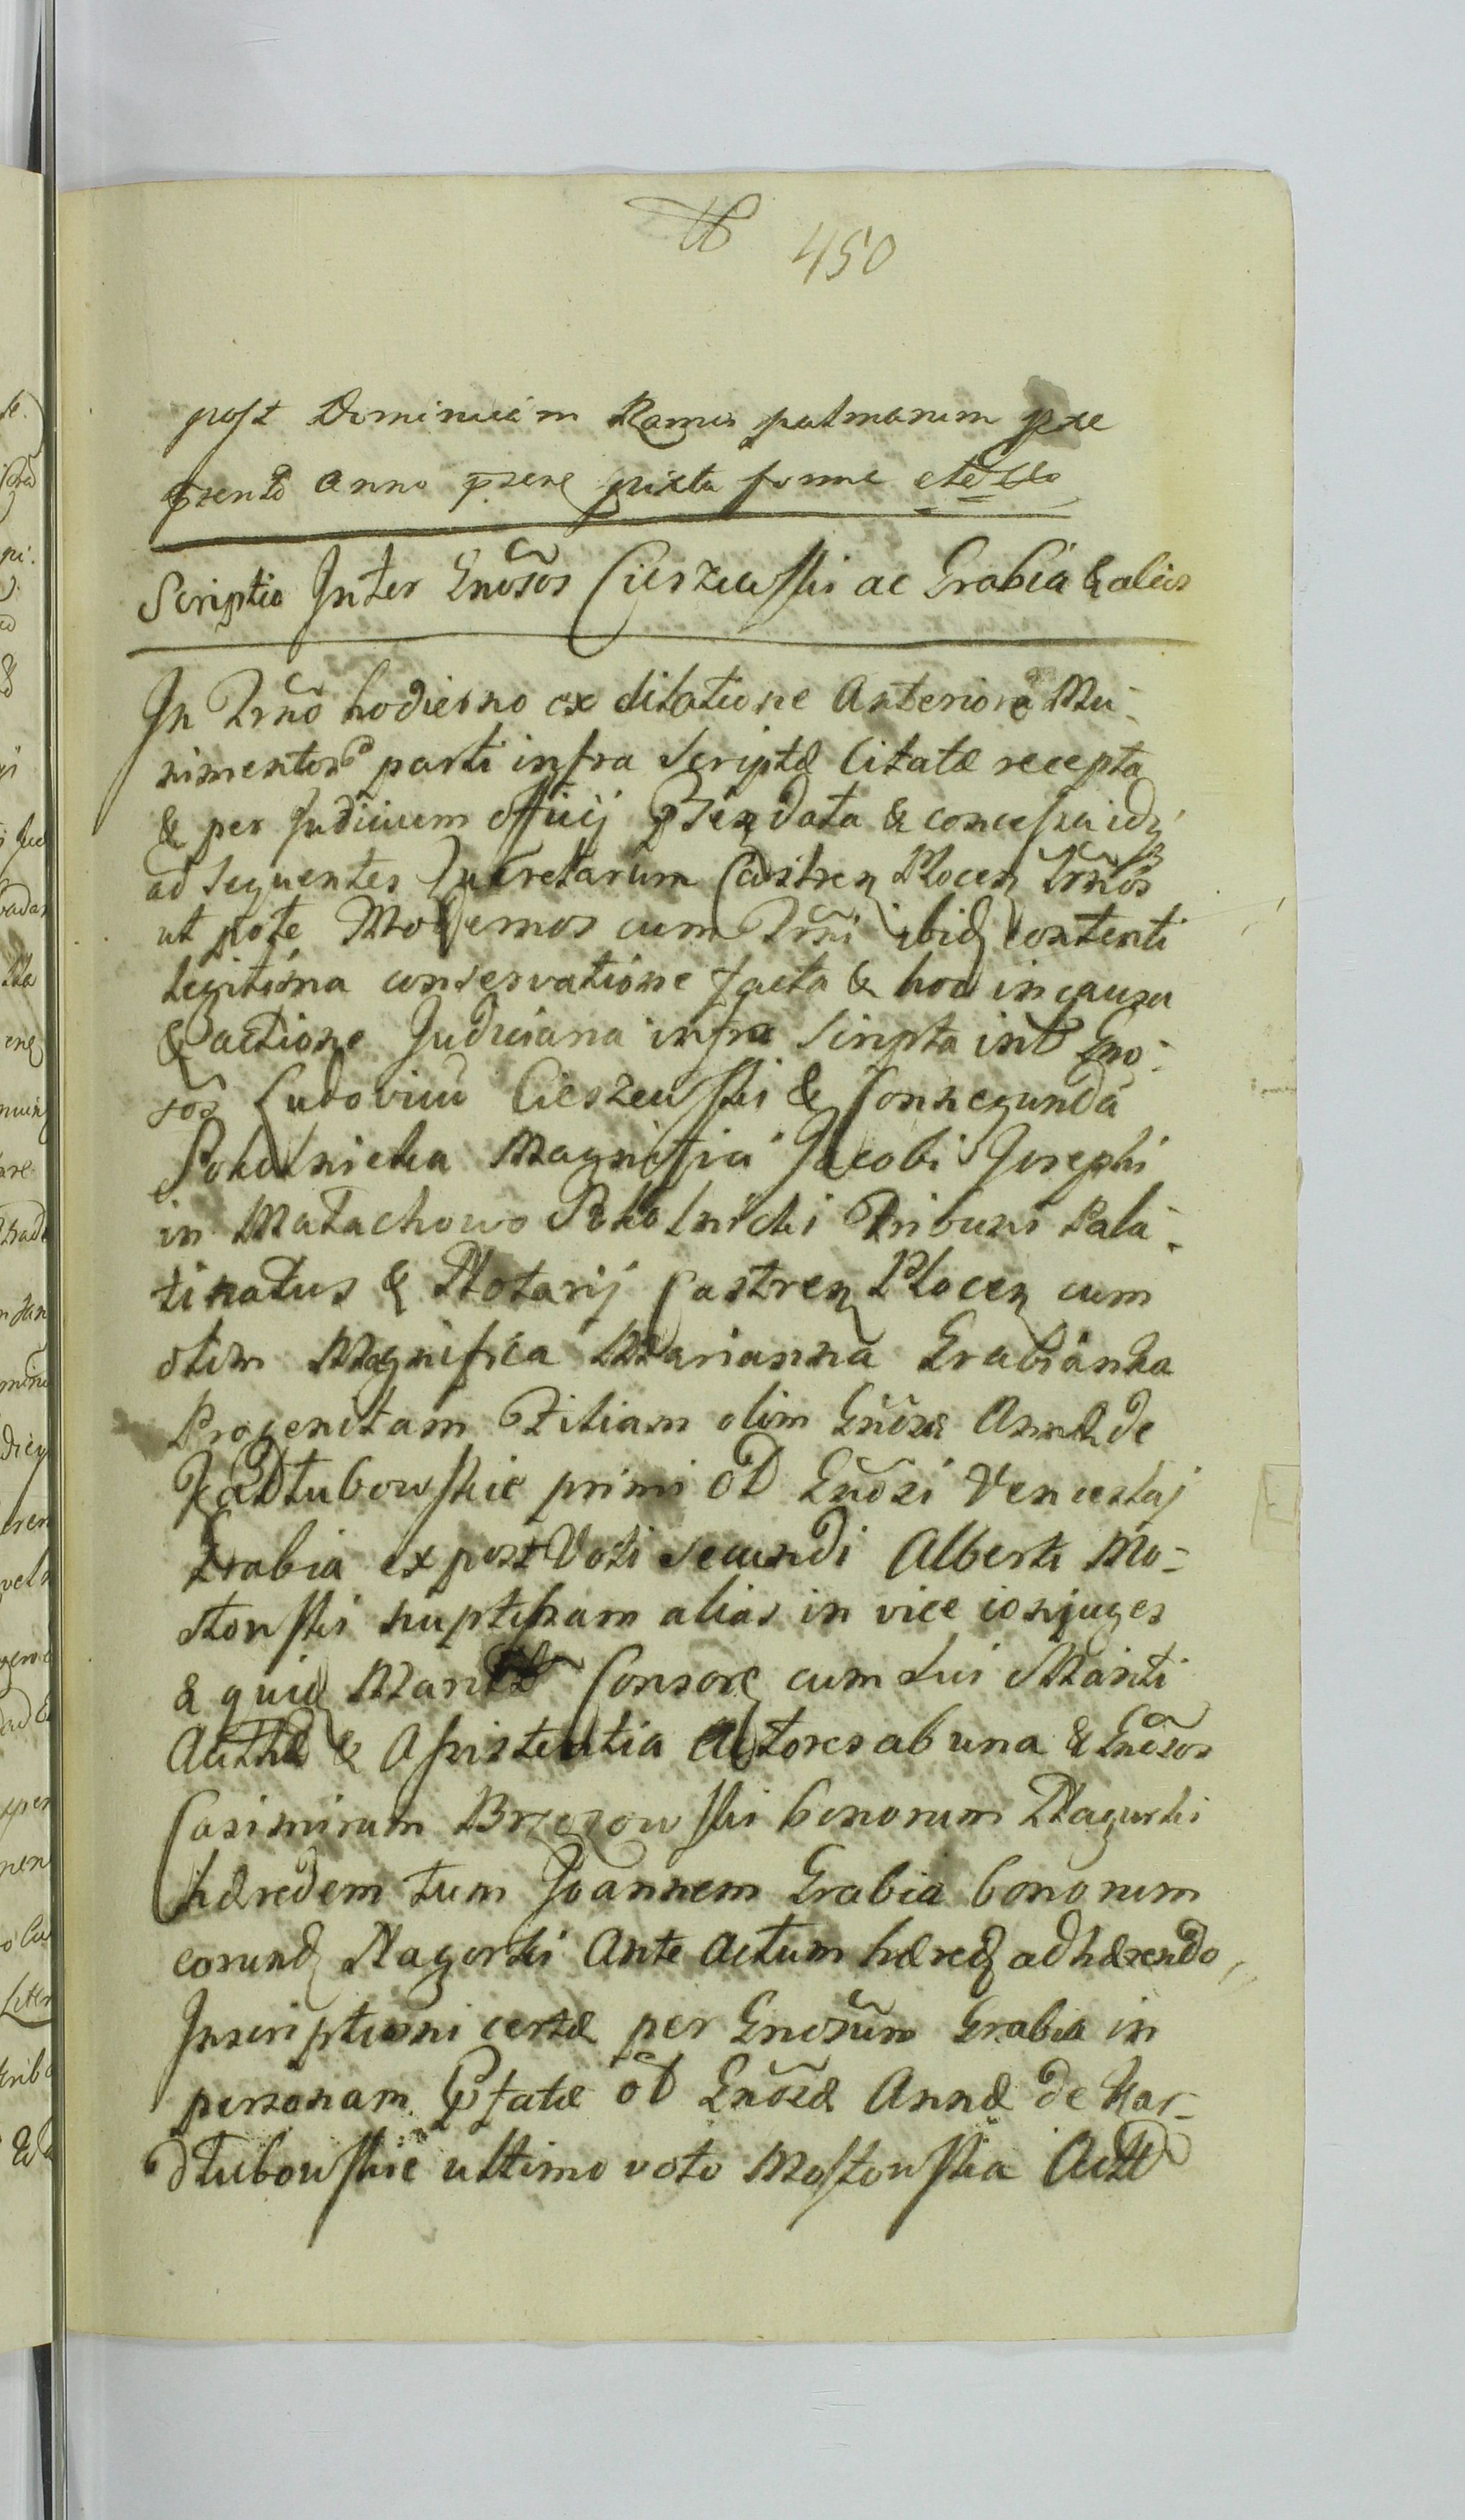 450
post Dominicam Ramis palmarum prae
senti anno praesen juxta formae etc
Scriptio Inter Gnõsos Cieszewski ac Grabia & alios
In Trño hodierno ex dilatione Anteriore Mu-
nimentorũ parti infra Scriptæ Citatæ recepta
& per Judicium officij data & concessa
ad sequentes Querelarum Castren Plocen Trños
ut pote Modernos cum Trñi ibid contenti
legitima conservatione facta & hoc in causa
& actione Judiciaria infra Scripta int Gno-
sos Ludovicũ Cieszewski & Connegunda
Pokolnicka Magnifici Jacobi Josephi
in Małachowo Pokolnicki Tribuni Pala-
tinatus & Notarij Castren Plocen cum
olim Magnifica Marianna Grabianka
Progenitam Filiam olim Gnõsæ Annæ de
Kadłubowskie primi õD Gnõsi Venceslaj
Grabia ex post Voti secundi Alberti Mo-
stowski nuptæ alias in vice conjuges
& quid Consors cum sui Mariti
Authæ & Assistentia Actores ab una & Gnõsos
Casimirum Brzozowski bonorum Nagurki
hæredem tum Joannem Grabia bonorum
eorund Nagorki Ante Actum hæred adhærendo
Inscriptioni certæ per Gnosum Grabia in
personam Pfatæ õD Gnõsæ Annæ de Kar-
dłubowskie ultimo voto Mostowska